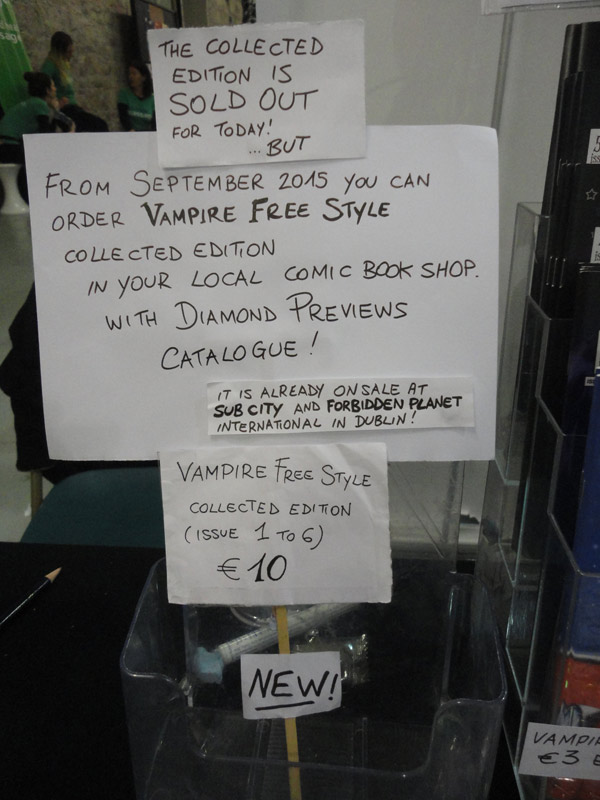 THE COLLECTED
EDITION IS
SOLD OUT
FOR TODAY!
...BUT
FROM SEPTEMBER 2015 YOU CAN
ORDER VAMPIRE FREE STYLE
COLLECTED EDITION
IN YOUR LOCAL COMIC BOOK SHOP.
WITH DIAMOND PREVIEWS
CATALOGUE!
IT IS ALREADY ON SALE AT
SUB CITY AND FORBIDDEN PLANET
INTERNATIONAL IN DUBLIN!
VAMPIRE FREE STYLE
COLLECTED EDITION
(ISSUE 1 TO 6)
€10
NEW!
€3